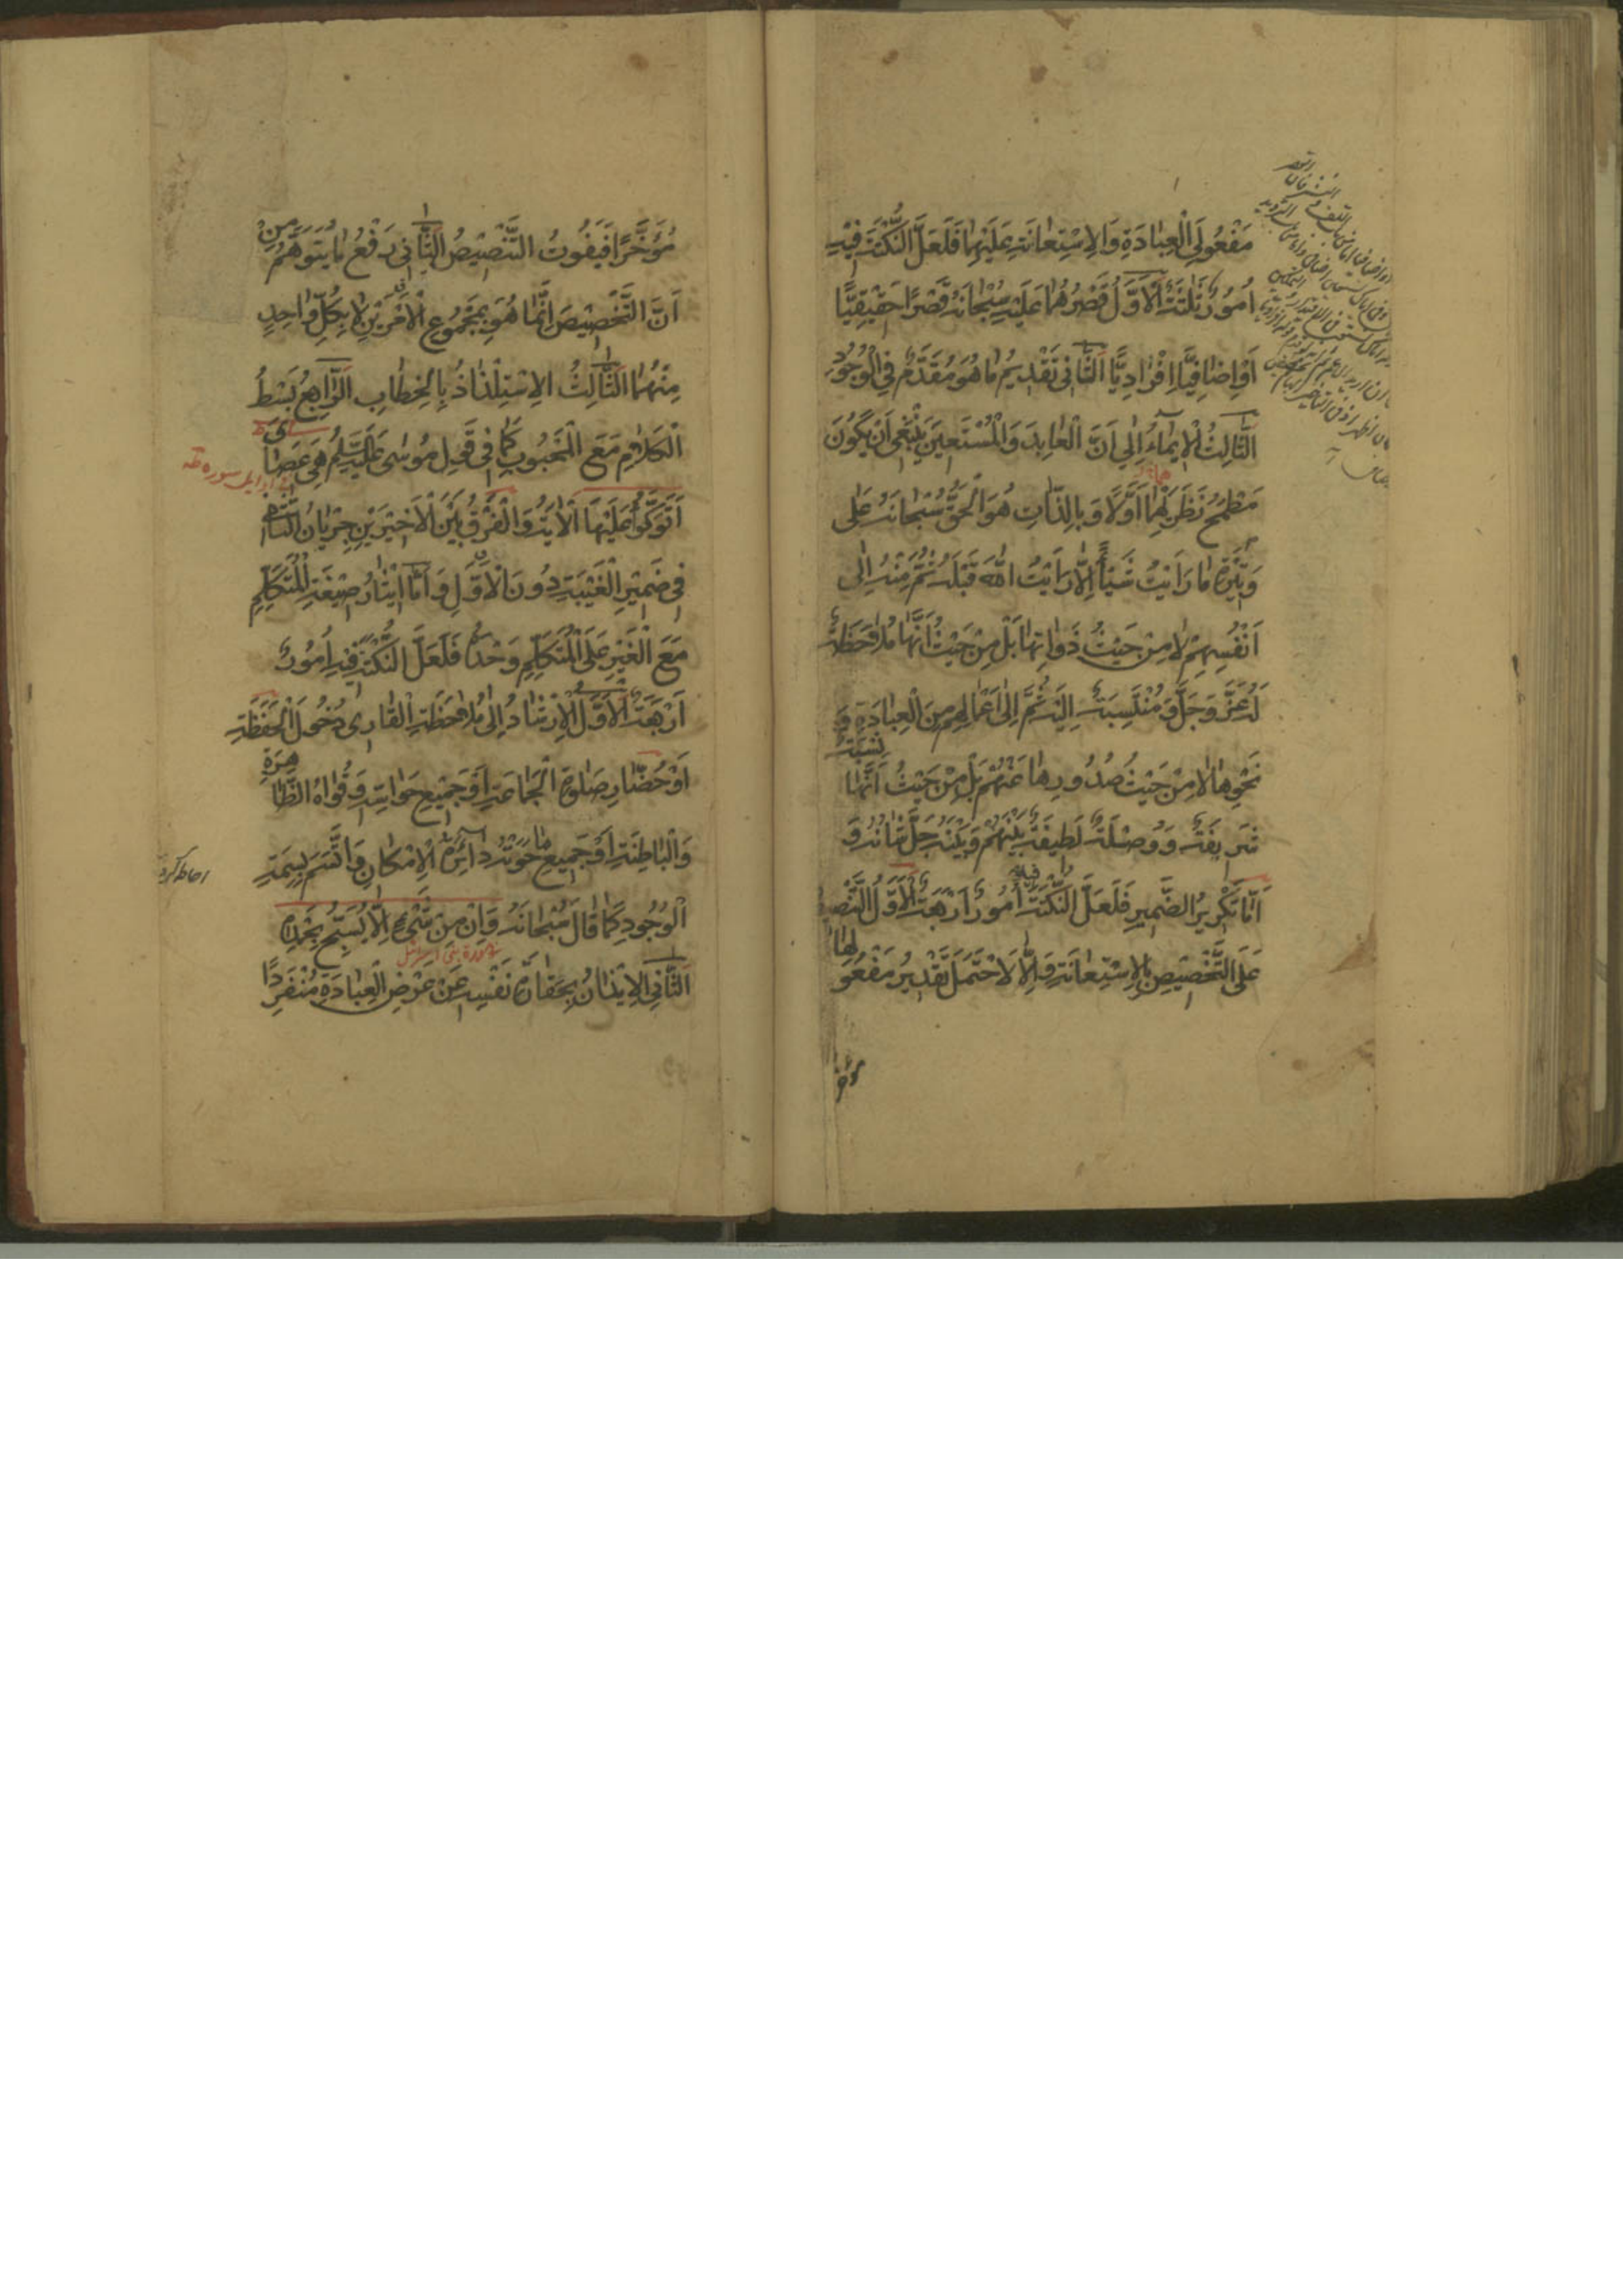 مَفْعُولَيِ الْعِبَادَةِ وَالِاسْتِعَانَةِ عَلَيْهِمَا فَلَعَلَّ النُّكْتَةَ فِيهِ
أُمُورٌ ثَلٰثَةٌ اَلْأَوَّلُ قَصْرُهُمَا عَلَيْهِ سُبْحَانَهُ قَصْرًا حَقِيقِيًّا
أَوْ إِضَافِيًّا إِفْرَادِيًّا اَلثَّانِي تَقْدِيمُ مَا هُوَ مُقَدَّمٌ فِي الْوُجُودِ
اَلثَّالِثُ الْإِيمَاءُ إِلَى أَنَّ الْعَابِدَ وَالْمُسْتَعِينَ يَنْبَغِي أَنْ يَكُونَ
مَطْمَحُ نَظَرِهِمَا أَوَّلًا وَبِالذَّاتِ هُوَ الْحَقُّ سُبْحَانَهُ عَلَى
وَتِيرَةِ مَا رَأَيْتُ شَيْئًا إِلَّا رَأَيْتُ اللّٰهَ قَبْلَهُ ثُمَّ مِنْهُ إِلَى
أَنْفُسِهِمْ لَا مِنْ حَيْثُ ذَوَاتِهَا بَلْ مِنْ حَيْثُ أَنَّهَا مُلَاحَظَةٌ
لَهُ عَزَّ وَجَلَّ وَ مُنْتَسِبَةٌ إِلَيْهِ ثُمَّ إِلَى أَعْمَالِهِمْ مِنَ الْعِبَادَةِ وَ
نَحْوِهَا لَا مِنْ حَيْثُ صُدُورِهَا عَنْهُمْ بَلْ مِنْ حَيْثُ أَنَّهَا نِسْبَةٌ
شَرِيفَةٌ وَ وُصْلَةٌ لَطِيفَةٌ بَيْنَهُمْ وَبَيْنَهُ جَلَّ شَانُهُ وَ
أَمَّا تَكْرِيرُ الضَّمِيرِ فَلَعَلَّ النُّكْتَةَ فِيهِ أُمُورٌ أَرْبَعَةٌ اَلْأَوَّلُ التَّنْصِيصُ
عَلَى التَّخْصِيصِ بِالِاسْتِعَانَةِ وَإِلَّا لَاحْتَمَلَ تَقْدِيرُ مَفْعُولِهَا
مؤخرا
مُؤَخَّرًا فَيَفُوتُ التَّنْصِيصُ اَلثَّانِي دَفْعُ مَا يُتَوَهَّمُ مِنْ
أَنَّ التَّخْصِيصَ إِنَّمَا هُوَ بِمَجْمُوعِ الْأَمْرَيْنِ لَا بِكُلِّ وَاحِدٍ
مِنْهُمَا اَلثَّالِثُ الِاسْتِلْذَاذُ بِالْخِطَابِ اَلرَّابِعُ بَسْطُ
الْكَلَامِ مَعَ الْمَحْبُوبِ كَمَا فِي قَوْلِ مُوسَى عَلَيْهِ السَّلَمُ هِيَ عَصَايَ
أَتَوَكَّؤُ عَلَيْهَا الْآيَةُ وَالْفَرْقُ بَيْنَ الْأَخِيرَيْنِ جِرْيَانُ الثَّانِي
فِي ضَمِيرِ الْغَيْبَةِ دُونَ الْأَوَّلِ وَأَمَّا إِيثَارُ صِيغَةِ الْمُتَكَلِّمِ
مَعَ الْغَيْرِ عَلَى الْمُتَكَلِّمِ وَحْدَهُ فَلَعَلَّ النُّكْتَةَ فِيهِ أُمُورٌ
أَرْبَعَةٌ اَلْأَوَّلُ الْإِرْشَادُ إِلَى مُلَاحَظَةِ الْقَارِي دُخُولَ الْحَفَظَةِ
أَوْ حُضَّارِ صَلٰوةِ الْجَمَاعَةِ أَوْ جَمِيعِ حَوَاسِّهِ وَقُوَاهُ الظَّاهِرَةِ
وَالْبَاطِنَةِ أَوْ جَمِيعِ مَا حَوَتْهُ دَائِرَةُ الْإِمْكَانِ وَاتَّسَمَ بِسِمَةِ
الْوُجُودِ كَمَا قَالَ سُبْحَانَهُ وَإِنْ مِنْ شَيْءٍ إِلَّا يُسَبِّحُ بِحَمْدِهِ
سورة بنى اسرائيل
اَلثَّانِي الْإِيذَانُ بِحَقَارَةِ نَفْسِهِ عَنْ عَرْضِ الْعِبَادَةِ مُنْفَرِدًا
اوايل سوره طه
احاطه كرده